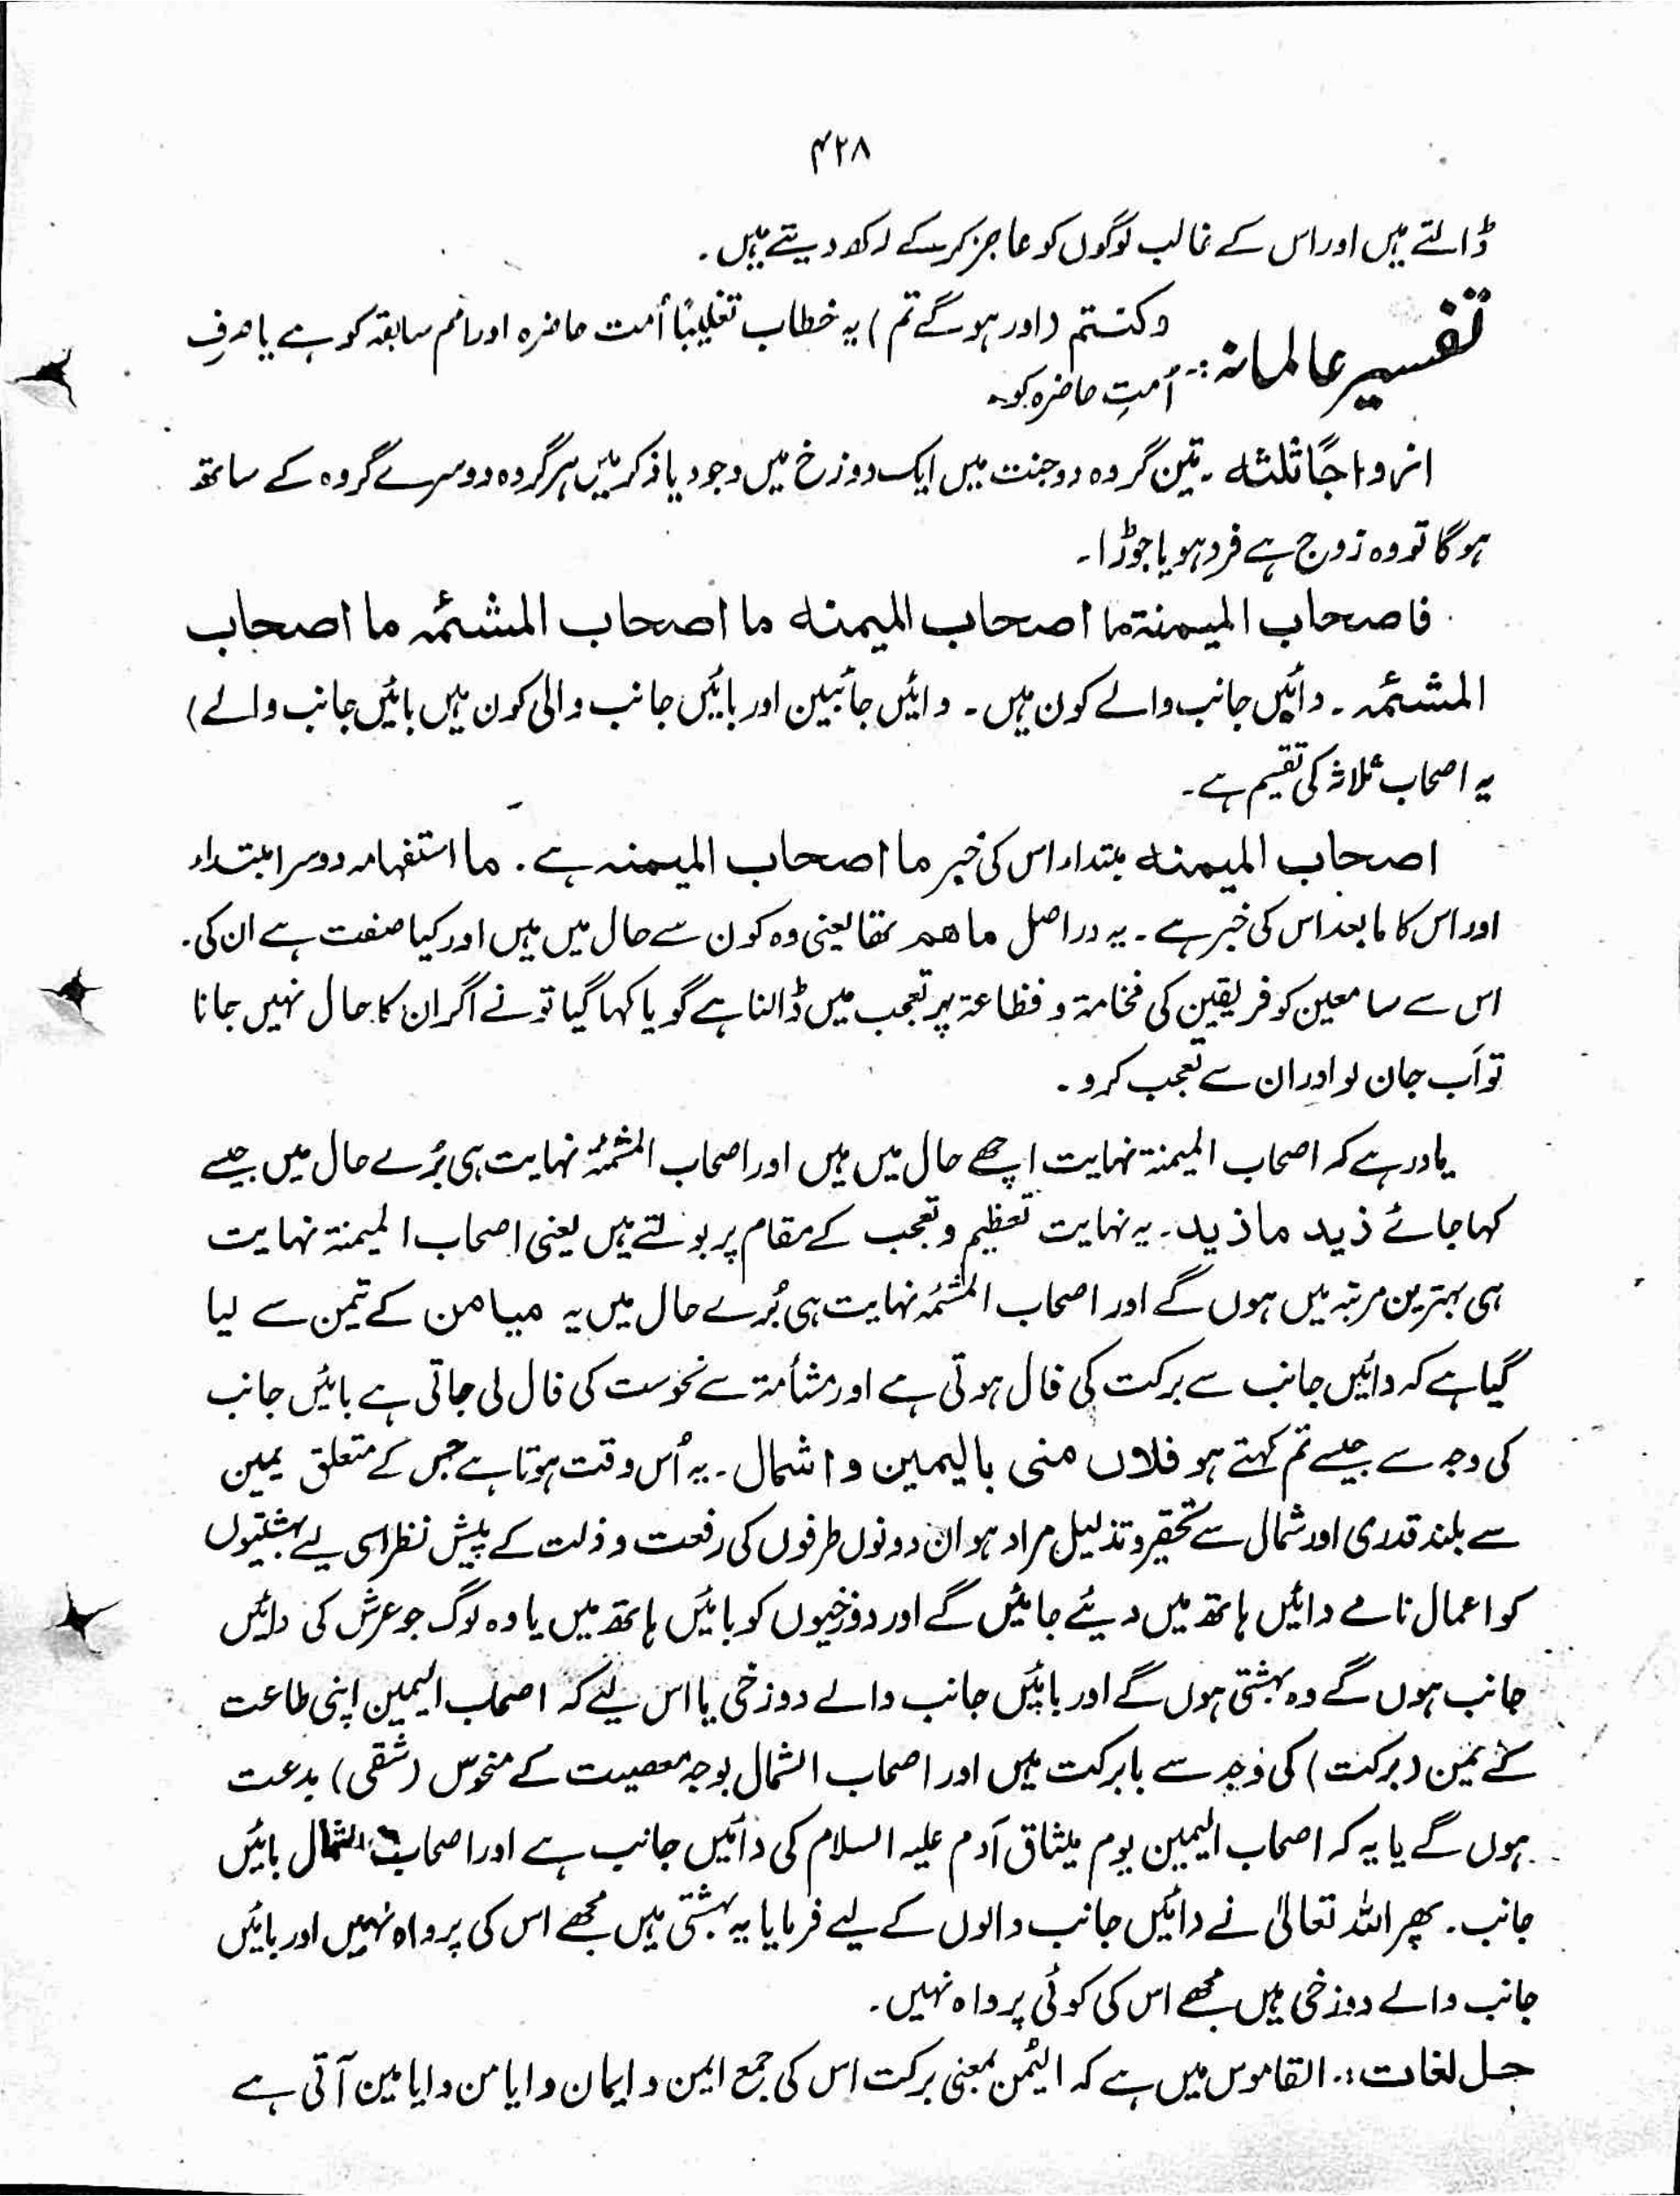 ۴۲۸
ڈالتے ہیں اور اس کے غالب لوگوں کو عاجز کر کے رکھ دیتے ہیں۔
تفسیر عالمانہ :- وکنتم (اور ہو گے تم) یہ خطاب تغلیبًا اُمت حاضرہ اور امم سابقہ کو ہے یا صرف
اُمتِ حاضرہ کو۔
ازواجًا ثلثہ ۔ تین گروہ دو جنت میں ایک دوزخ میں وجود یا ذکر میں ہر گروہ دوسرے گروہ کے ساتھ
ہو گا تو وہ زوج ہے فرد ہو یا جوڑا۔
فاصحاب المیمنۃ ما اصحاب المیمنہ ما اصحاب المشئمہ ما اصحاب
المشئمہ ۔ دائیں جانب والے کون ہیں ۔ دائیں جانبین اور بائیں جانب والی کون ہیں بائیں جانب والے)
یہ اصحاب ثلاثہ کی تقسیم ہے۔
اصحاب المیمنہ مبتداء اس کی خبر ما اصحاب المیمنہ ہے ۔ ما استفہامہ دوسرا مبتداء
اور اس کا مابعد اس کی خبر ہے ۔ یہ دراصل ماھم تھا یعنی وہ کون سے حال میں ہیں اور کیا صفت ہے ان کی۔
اس سے سامعین کو فریقین کی فخامۃ و فظاعۃ پر تعجب میں ڈالنا ہے گویا کہا گیا تو نے اگر ان کا حال نہیں جانا
تو اَب جان لو اور ان سے تعجب کرو ۔
یاد رہے کہ اصحاب المیمنۃ نہایت اچھے حال میں ہیں اور اصحاب المشئمۃ نہایت ہی بُرے حال میں جیسے
کہا جائے ذید ماذید ۔ یہ نہایت تعظیم و تعجب کے مقام پر بولتے ہیں یعنی اصحاب المیمنۃ نہایت
ہی بہترین مرتبہ میں ہوں گے اور اصحاب المشئمہ نہایت ہی بُرے حال میں یہ میامن کے تیمن سے لیا
گیا ہے کہ دائیں جانب سے برکت کی فال ہوتی ہے اور مشأمۃ سے نحوست کی فال لی جاتی ہے بائیں جانب
کی وجہ سے جیسے تم کہتے ہو فلاں منی بالیمین و اشمال ۔ یہ اُس وقت ہوتا ہے جس کے متعلق یمین
سے بلند قدری اور شمال سے تحقیر و تذلیل مراد ہو ان دونوں طرفوں کی رفعت و ذلت کے پیش نظر اسی لیے بہشتیوں
کو اعمال نامے دائیں ہاتھ میں دیئے جائیں گے اور دوزخیوں کو بائیں ہاتھ میں یا وہ لوگ جو عرش کی دائیں
جانب ہوں گے وہ بہشتی ہوں گے اور بائیں جانب والے دوزخی یا اس لیے کہ اصحاب الیمین اپنی طاعت
کے یمین (برکت) کی وجہ سے بابرکت ہیں اور اصحاب الشمال بوجہ معصیت کے منحوس (شقی) بدعت
ہوں گے یا یہ کہ اصحاب الیمین یوم میثاق آدم علیہ السلام کی دائیں جانب ہے اور اصحاب الشمال بائیں
جانب ۔ پھر اللہ تعالیٰ نے دائیں جانب والوں کے لیے فرمایا یہ بہشتی ہیں مجھے اس کی پرواہ نہیں اور بائیں
جانب والے دوزخی ہیں مجھے اس کی کوئی پرواہ نہیں ۔
حل لغات :۔ القاموس میں ہے کہ الیُمن بمعنی برکت اس کی جمع ایمن و ایمان و ایامن و ایامین آتی ہے